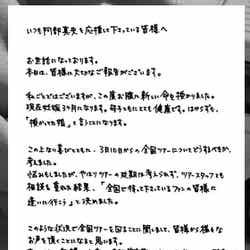 いつも阿部真央を応援して下さっている皆様へ
お世話になっております。
本日は、皆様に大切なご報告がございます。
私ごとではございますが、この度お腹に新しい命を授かりました。
現在妊娠3ヶ月になります。母子ともにとても健康です。はからずも、
「授かり婚」と言うことになります。
この上ない喜びとともに、3月15日からの全国ツアーについてどうするべきか、
考えました。
悩みもしましたが、やはりツアーの延期は考えられず、ツアースタッフとも
相談を重ねた結果、「全国で待って下さっているファンの皆様に
逢いに行こう」と決めました。
このような状況で全国ツアーを回ることに関しまして、皆様から様々な
お声を頂くことになると思います。